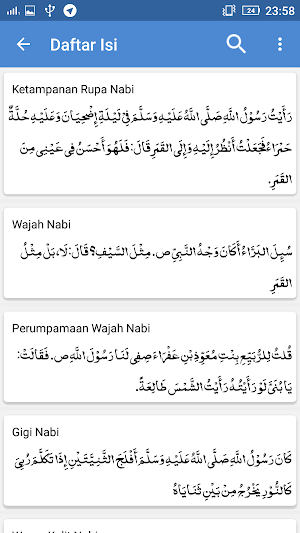 24 23:58
Daftar Isi
Ketampanan Rupa Nabi
رَأَيْتُ رَسُوْلُ اللَّهِ صَلَّى اللَّهُ عَلَيْهِ وَسَلَّمَ فِيْ لَيْلَةِ إِضْحِيَانَ وَعَلَيْهِ حُلَّةٌ
حَمْرَاءُ فَجَعَلْتُ أَنْظُرُ إِلَيْهِ وَإِلَى القَمَرِ قَالَ: فَلَهُوَ أَحْسَنُ فِى عَيْنِى مِنَ
القَمَرِ.
Wajah Nabi
سُىِلَ البَرَّاءُ أَكَانَ وَجْهُ النَّبِيِّ ص. مِثْلَ السَّيْفِ؟ قَالَ: لَا، بَلْ مِثْلُ
القَمَرِ
Perumpamaan Wajah Nabi
قُلتُ لِلرُّبَيِّعِ بِنْتِ مُعَوِّذِ بْنِ عَفْرَاءَ صِفِى لَنَا رَسُوْلَ اللَّهِ ص. فَقَالَتْ:
يَا بُنَىَّ لَوْ رَأَيْتُهُ رَأَيْتُ الشَّمْسَ طَالِعَةً.
Gigi Nabi
كَانَ رَسُوْلُ اللَّهِ صَلَّى اللَّهُ عَلَيْهِ وَسَلَّمَ أَفْلَجَ الثَّنِيَّتَيْنِ إِذَا تَكَلَّمَ رُىِيَ
كَالنُّوْرِ يَخْرُجُ مِنْ بَيْنِ ثَنَايَاهُ